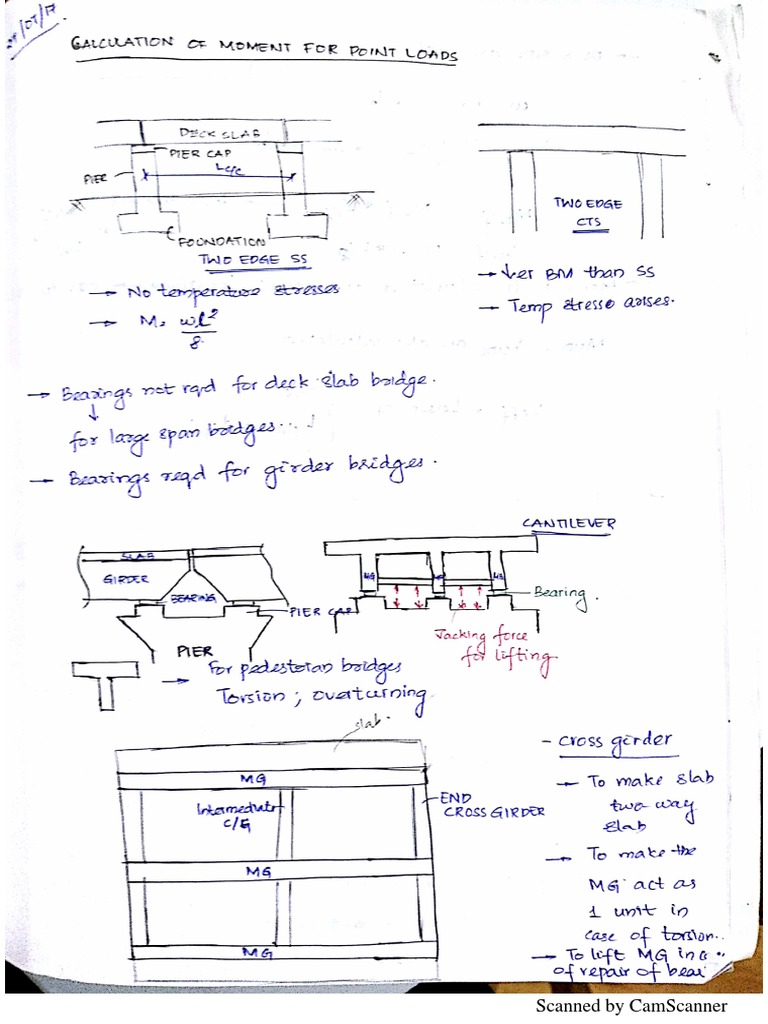 CALCULATION OF MOMENT FOR POINT LOADS
DECK SLAB
PIER CAP
PIER
L c/c
FOUNDATION
TWO EDGE SS
→ No temperature stresses
→ M = wl²/8
TWO EDGE
CTS
→ ↓er BM than SS
→ Temp stresse arises.
→ Bearings not rqd for deck slab bridge.
↓
for large span bridges...
→ Bearings reqd for girder bridges.
CANTILEVER
SLAB
GIRDER
BEARING
PIER CAP
PIER
MG
MG
MG
Bearing.
Jacking force
for lifting
→ For pedestrian bridges
Torsion ; overturning.
slab.
MG
Intermediate
C/G
END
CROSS GIRDER
MG
MG
- Cross girder
→ To make slab
two way
slab
→ To make the
MG act as
1 unit in
case of torsion..
→ To lift MG in
of repair of bea
Scanned by CamScanner